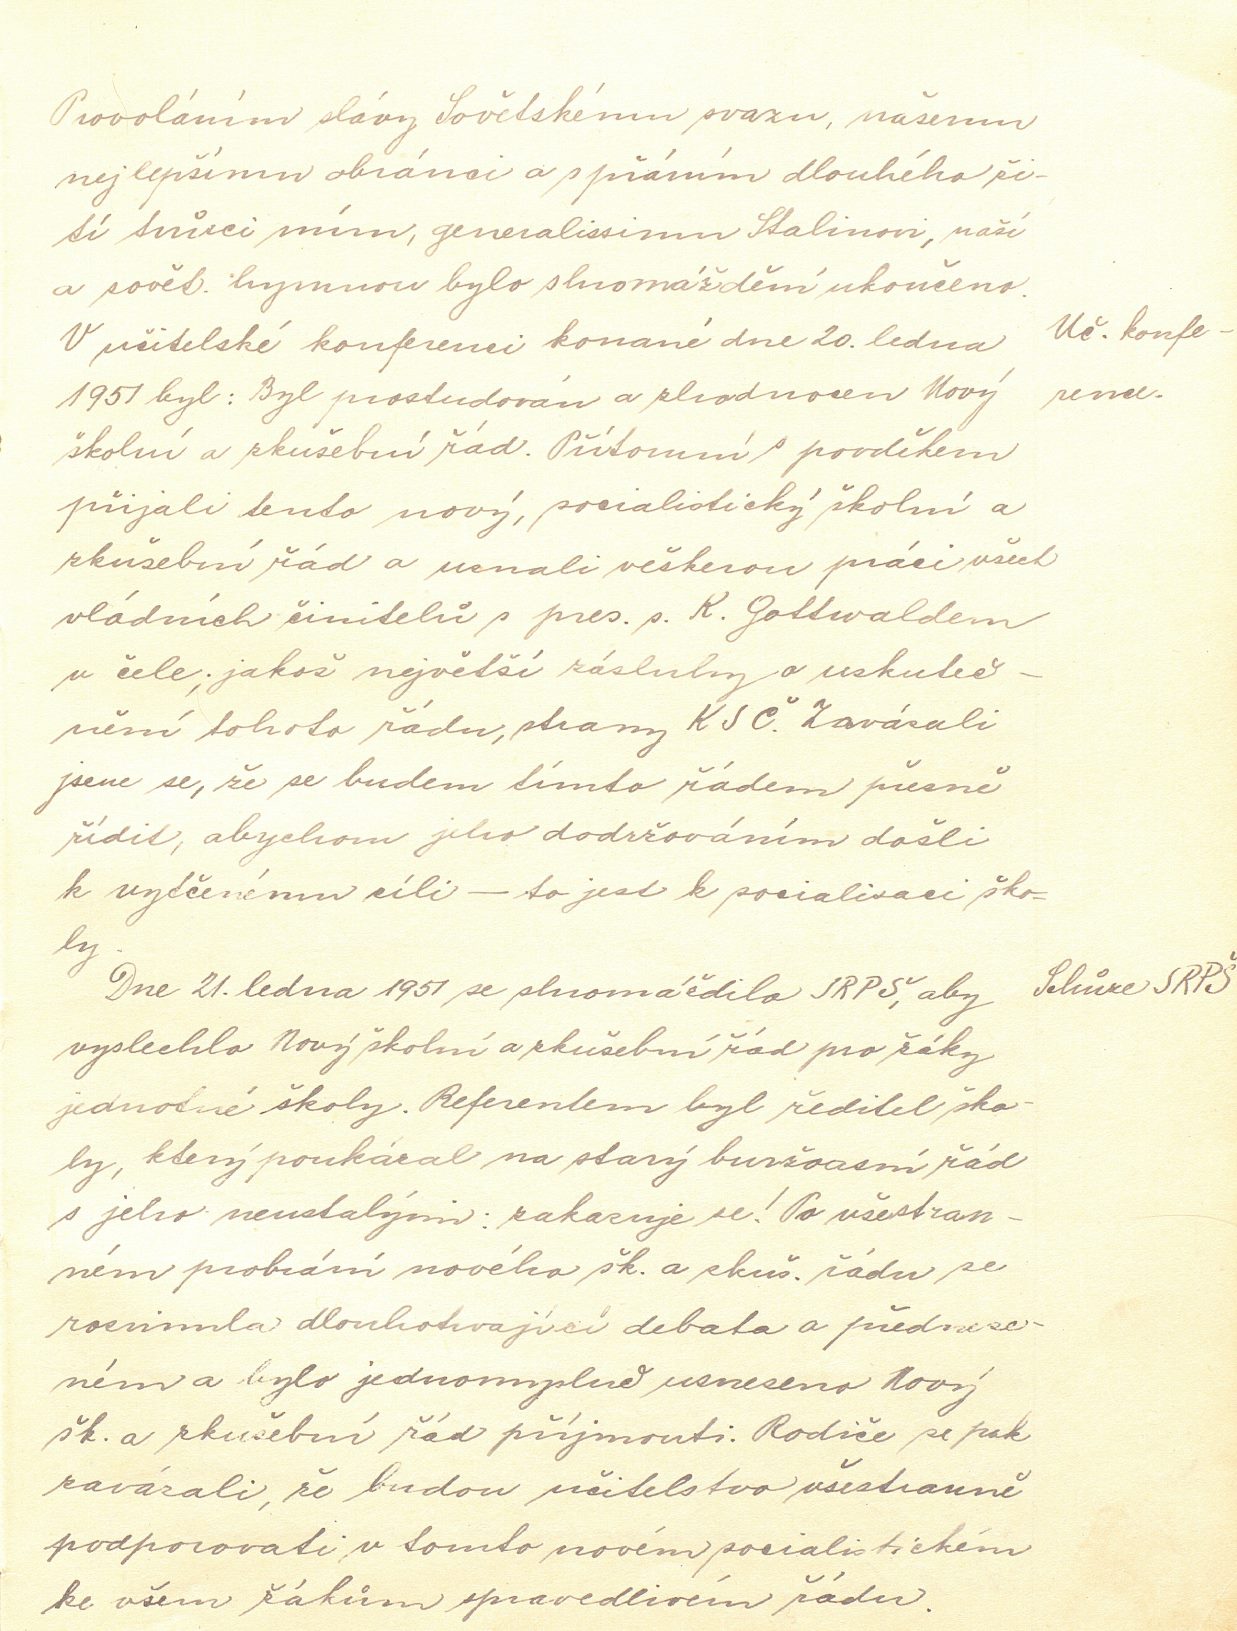 Provoláním slávy Sovětskému svazu, našemu
nejlepšímu obránci a s přáním dlouhého ži-
tí tvůrci míru, generalissimu Stalinovi, naší
a sovět. hymnou bylo shromáždění ukončeno.
V učitelské konferenci konané dne 20. ledna
Uč. konfe-
1951 byl: Byl prostudován a zhodnocen Nový
rence.
školní a zkušební řád. Přítomní s povděkem
přijali tento nový, socialistický školní a
zkušební řád a uznali veškerou práci všech
vládních činitelů s pres. s. K. Gottwaldem
v čele, jakož největší zásluhy o uskuteč-
nění tohoto řádu, strany KSČ. Zavázali
jsme se, že se budem tímto řádem přesně
řídit, abychom jeho dodržováním došli
k vytčenému cíli — to jest k socialisaci ško-
ly.
Dne 21. ledna 1951 se shromáždilo SRPŠ, aby
Schůze SRPŠ
vyslechlo Nový školní a zkušební řád pro žáky
jednotné školy. Referentem byl ředitel ško-
ly, který poukázal na starý buržoasní řád
s jeho neustalými: zakazuje se! Po všestran-
ném probrání nového šk. a zkuš. řádu se
rozvinula dlouhotrvající debata o přednese-
ném a bylo jednomyslně usneseno Nový
šk. a zkušební řád příjmouti. Rodiče se pak
zavázali, že budou učitelstvo všestranně
podporovati v tomto novém socialistickém
ke všem žákům spravedlivém řádu.